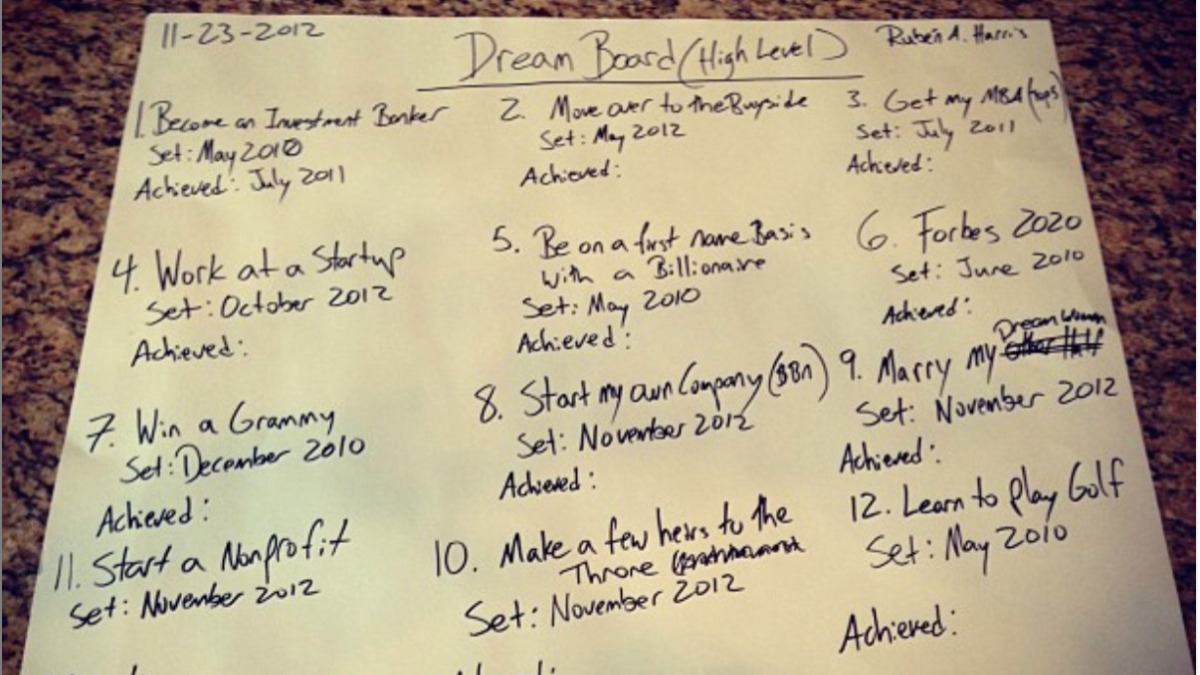 11-23-2012
Dream Board (High Level)
Ruben A. Harris
1. Become an Investment Banker
Set: May 2010
Achieved: July 2011
2. Move over to the Buyside
Set: May 2012
Achieved:
3. Get my MBA (top5)
Set: July 2011
Achieved:
4. Work at a Startup
Set: October 2012
Achieved:
5. Be on a first name Basis
with a Billionaire
Set: May 2010
Achieved:
6. Forbes 2020
Set: June 2010
Achieved:
7. Win a Grammy
Set: December 2010
Achieved:
8. Start my own Company ($Bn)
Set: November 2012
Achieved:
Dream Woman
9. Marry my other Half
Set: November 2012
Achieved:
11. Start a Nonprofit
Set: November 2012
10. Make a few heirs to the
Throne
Set: November 2012
12. Learn to play Golf
Set: May 2010
Achieved: